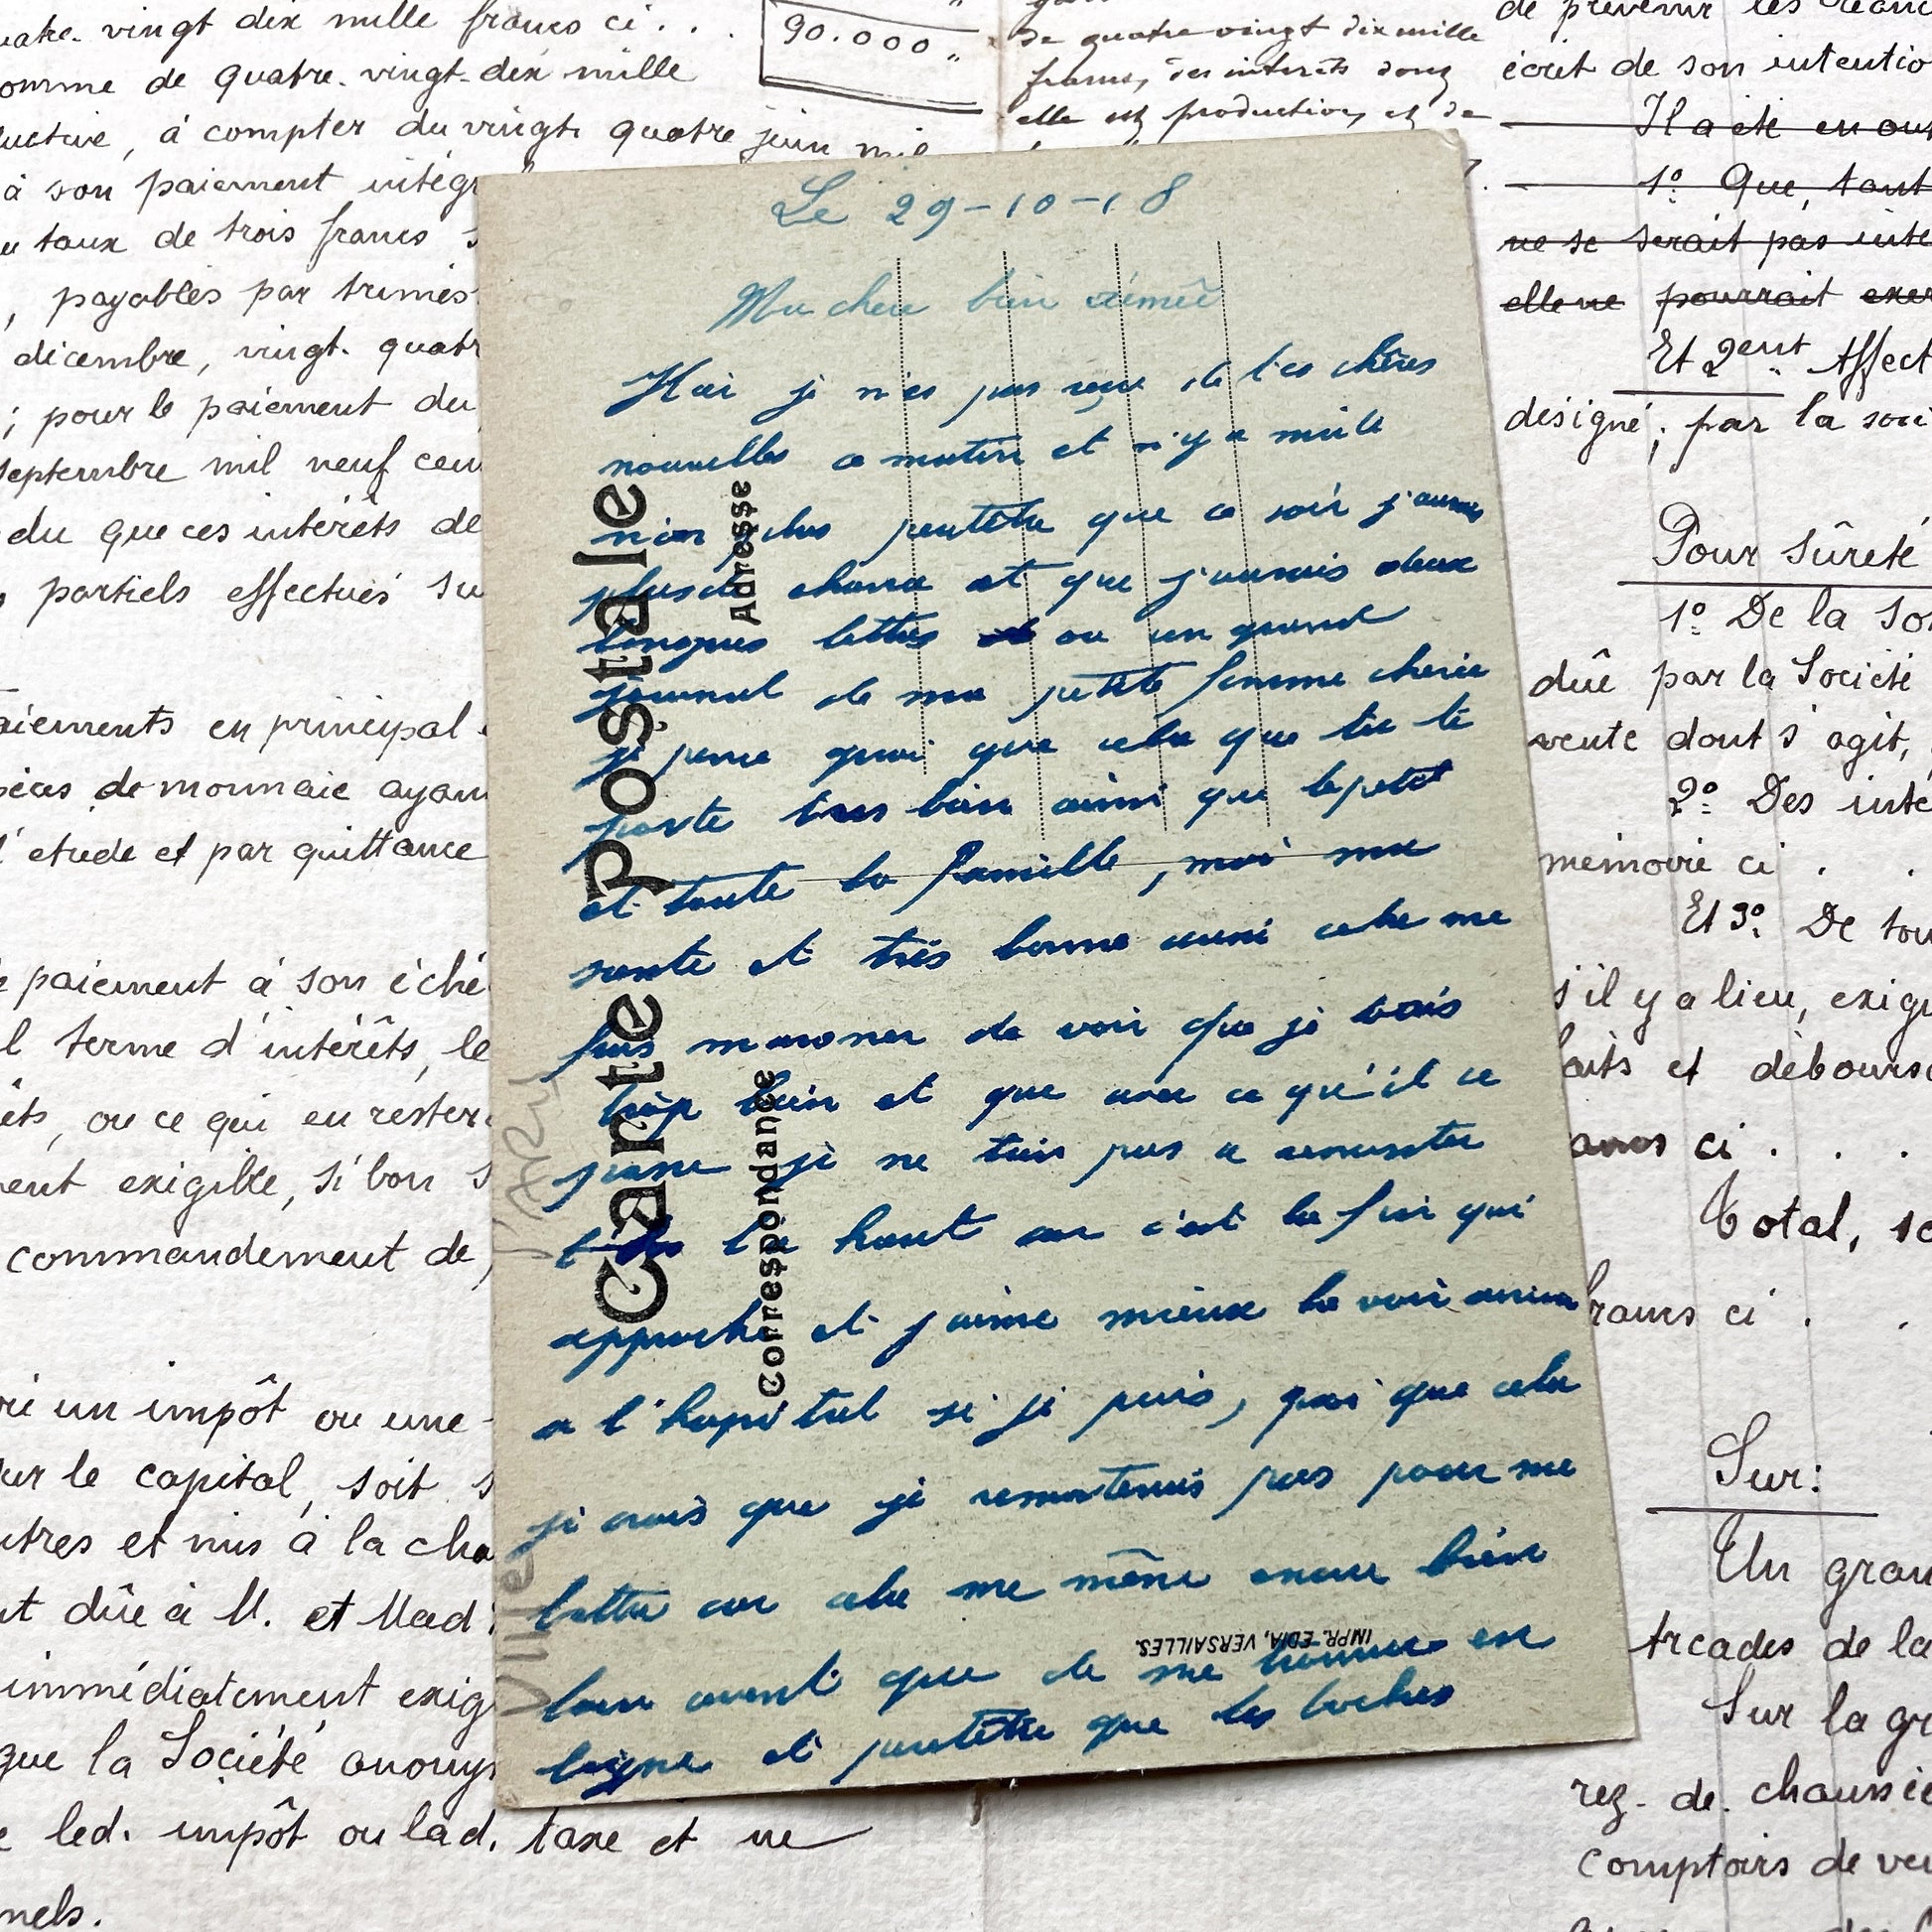 uatre-vingt dix mille francs ci . . .
90.000 "
omme de quatre-vingt-dix mille
uctive, à compter du vingt-quatre juin mil
à son paiement intégr
u taux de trois francs
, payables par trimes
décembre, vingt-quatr
; pour le paiement du
septembre mil neuf cen
du que ces intérêts de
partiels effectués su
aiements en principal
pèces de monnaie ayan
l'étude et par quittance
e paiement à son éché
l terme d'intérêts, le
êts, ou ce qui en rester
ent exigible, si bon s
commandement de
un impôt ou une
ur le capital, soit s
utres et mis à la cha
nt dûe à M. et Mad
immédiatement exig
que la Société anonym
led. impôt ou lad. taxe et ne
nels.
de quatre vingt dix mille
francs, des intérêts dont
elle est production, et de
Le 29-10-18
Ma cher bien aimée
Hair je n'es pas reçue de tes chères
nouvelles ce matin et n'y a mile
nion plus peutêtre que ce soir j'aurais
plus de chance et que j'aurais deux
longues lettres ou un grand
journal de ma petite femme cherie
je pense quoi que cela que tu te
porte tres bien ainsi que le petit
et toute la famille, moi ma
sante et très bonne aussi cela me
fais maronner de voir que je vais
trop bien et que avec ce qu'il ce
passe je ne tien pas a remonter
la haut car c'est la fin qui
approche et j'aime mieux la voir arriver
a l'hapital si je puis, quoi que cela
je crois que je remonterais pas pour me
battre car cela me mène encore bien
loin avant que de me trouver en
laigne et peutêtre que les boches
Carte Postale
Adresse
Correspondance
IMPR. EDIA, VERSAILLES.
Ville
de prévenir les
écrit de son intentio
Il a été en out
1° Que, tant
ne se serait pas inté
elle ne pourrait exer
Et 2ent Affect
désigné; par la son
Pour Sûreté
1° De la so
dûe par la Société
vente dont s'agit,
2° Des inté
mémoire ci . .
Et 3° De tou
s'il y a lieu, exig
aits et débours
ancs ci . . .
Total, so
francs ci . .
Sur:
Un gran
Arcades de la
Sur la gr
rez-de-chaussée
comptoirs de ven